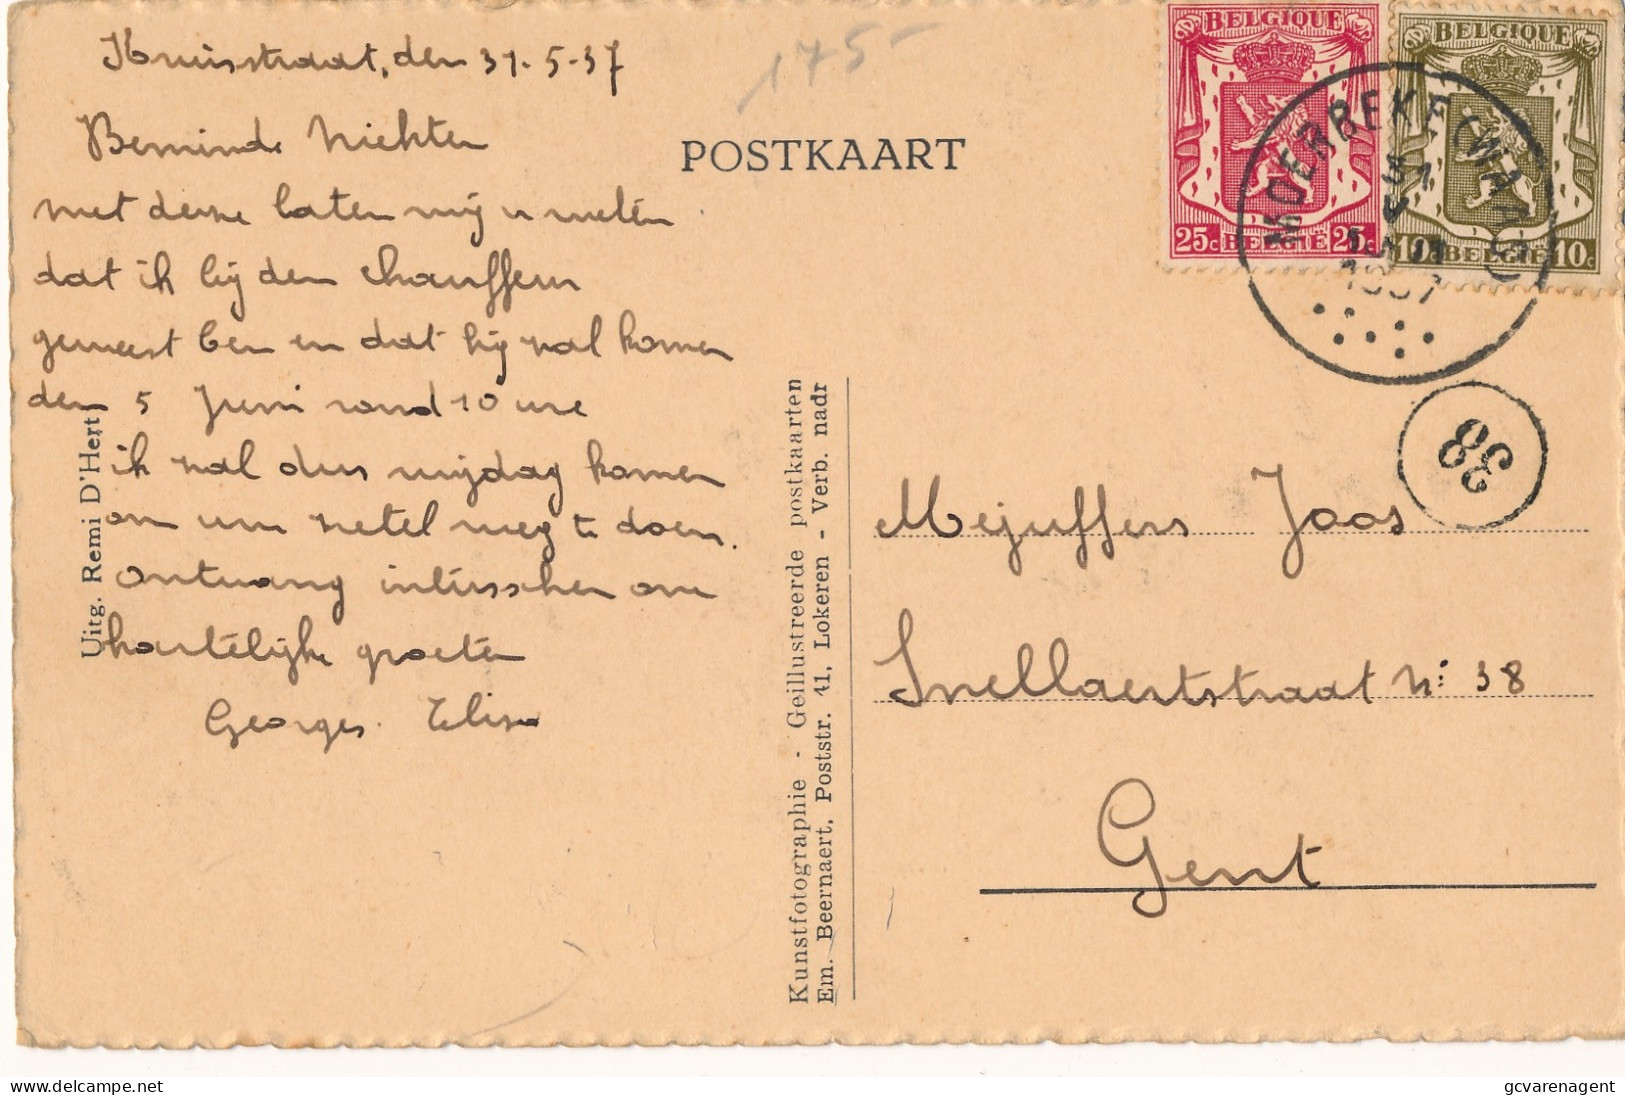 Kruisstraat, den 31-5-37
Beminde Nichten
met deze laten wij u weten
dat ik bij den chauffeur
geweest ben en dat hij zal komen
den 5 Juni rond 10 ure
ik zal dus vrijdag komen
om uw zetel weg te doen.
ontvang intusschen onze
hartelijke groeten
Georges. Elisa
Uitg. Remi D'Hert
175-
POSTKAART
Kunstfotographie - Geillustreerde postkaarten
Em. Beernaert, Poststr. 41, Lokeren - Verb. nadr
BELGIQUE
25c BELGIË 25c
BELGIQUE
10c BELGIË 10c
MOERBEKE (WAAS)
31
5
1937
38
Mejuffers Joos
Snellaertstraat N: 38
Gent
gcvarenagent